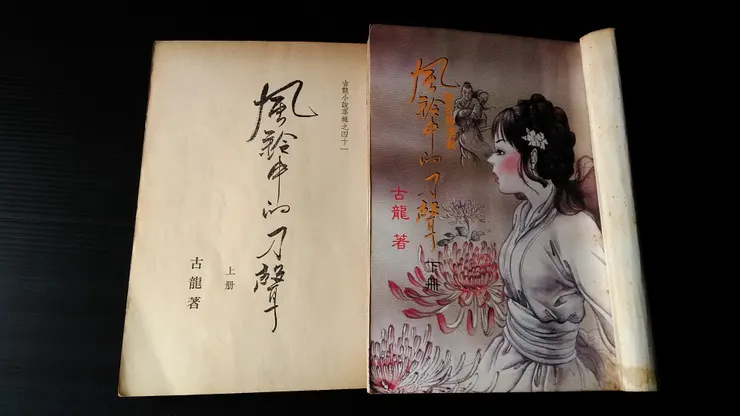 古龍小說專輯之四十一
風鈴中的刀聲
上册
古龍著
風鈴中的刀聲
古龍 著
下册